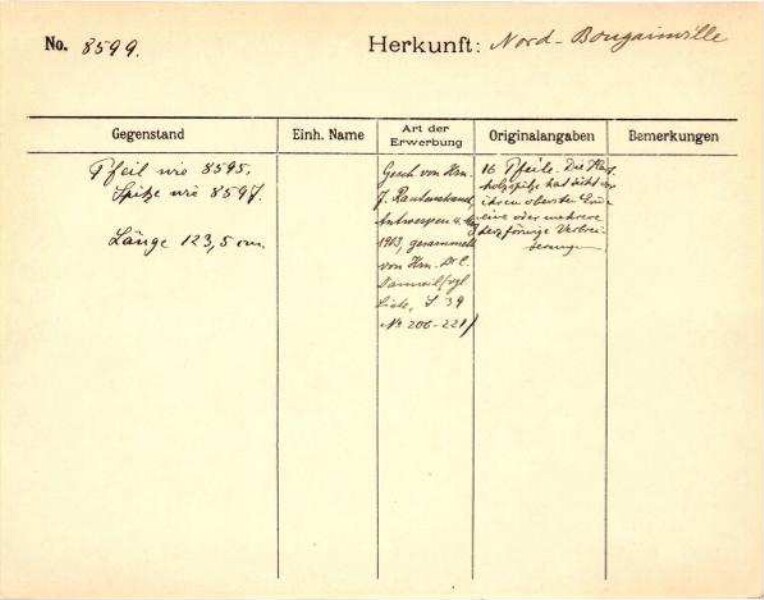 No. 8599.
Herkunft: Nord-Bougainville
Gegenstand
Einh. Name
Art der
Erwerbung
Originalangaben
Bemerkungen
Pfeil wie 8595.
Spitze wie 8597.
Länge 123,5 cm.
Gesch von Hrn.
J. Rautenstrauch,
Antwerpen
1913, gesammelt
von Hrn. Dr C.
Liste, S 39
No 206-221)
16 Pfeile. Die
holzspitze hat dicht
ihren obersten
eine oder mehrere
herzförmige Verbrei-
terungen